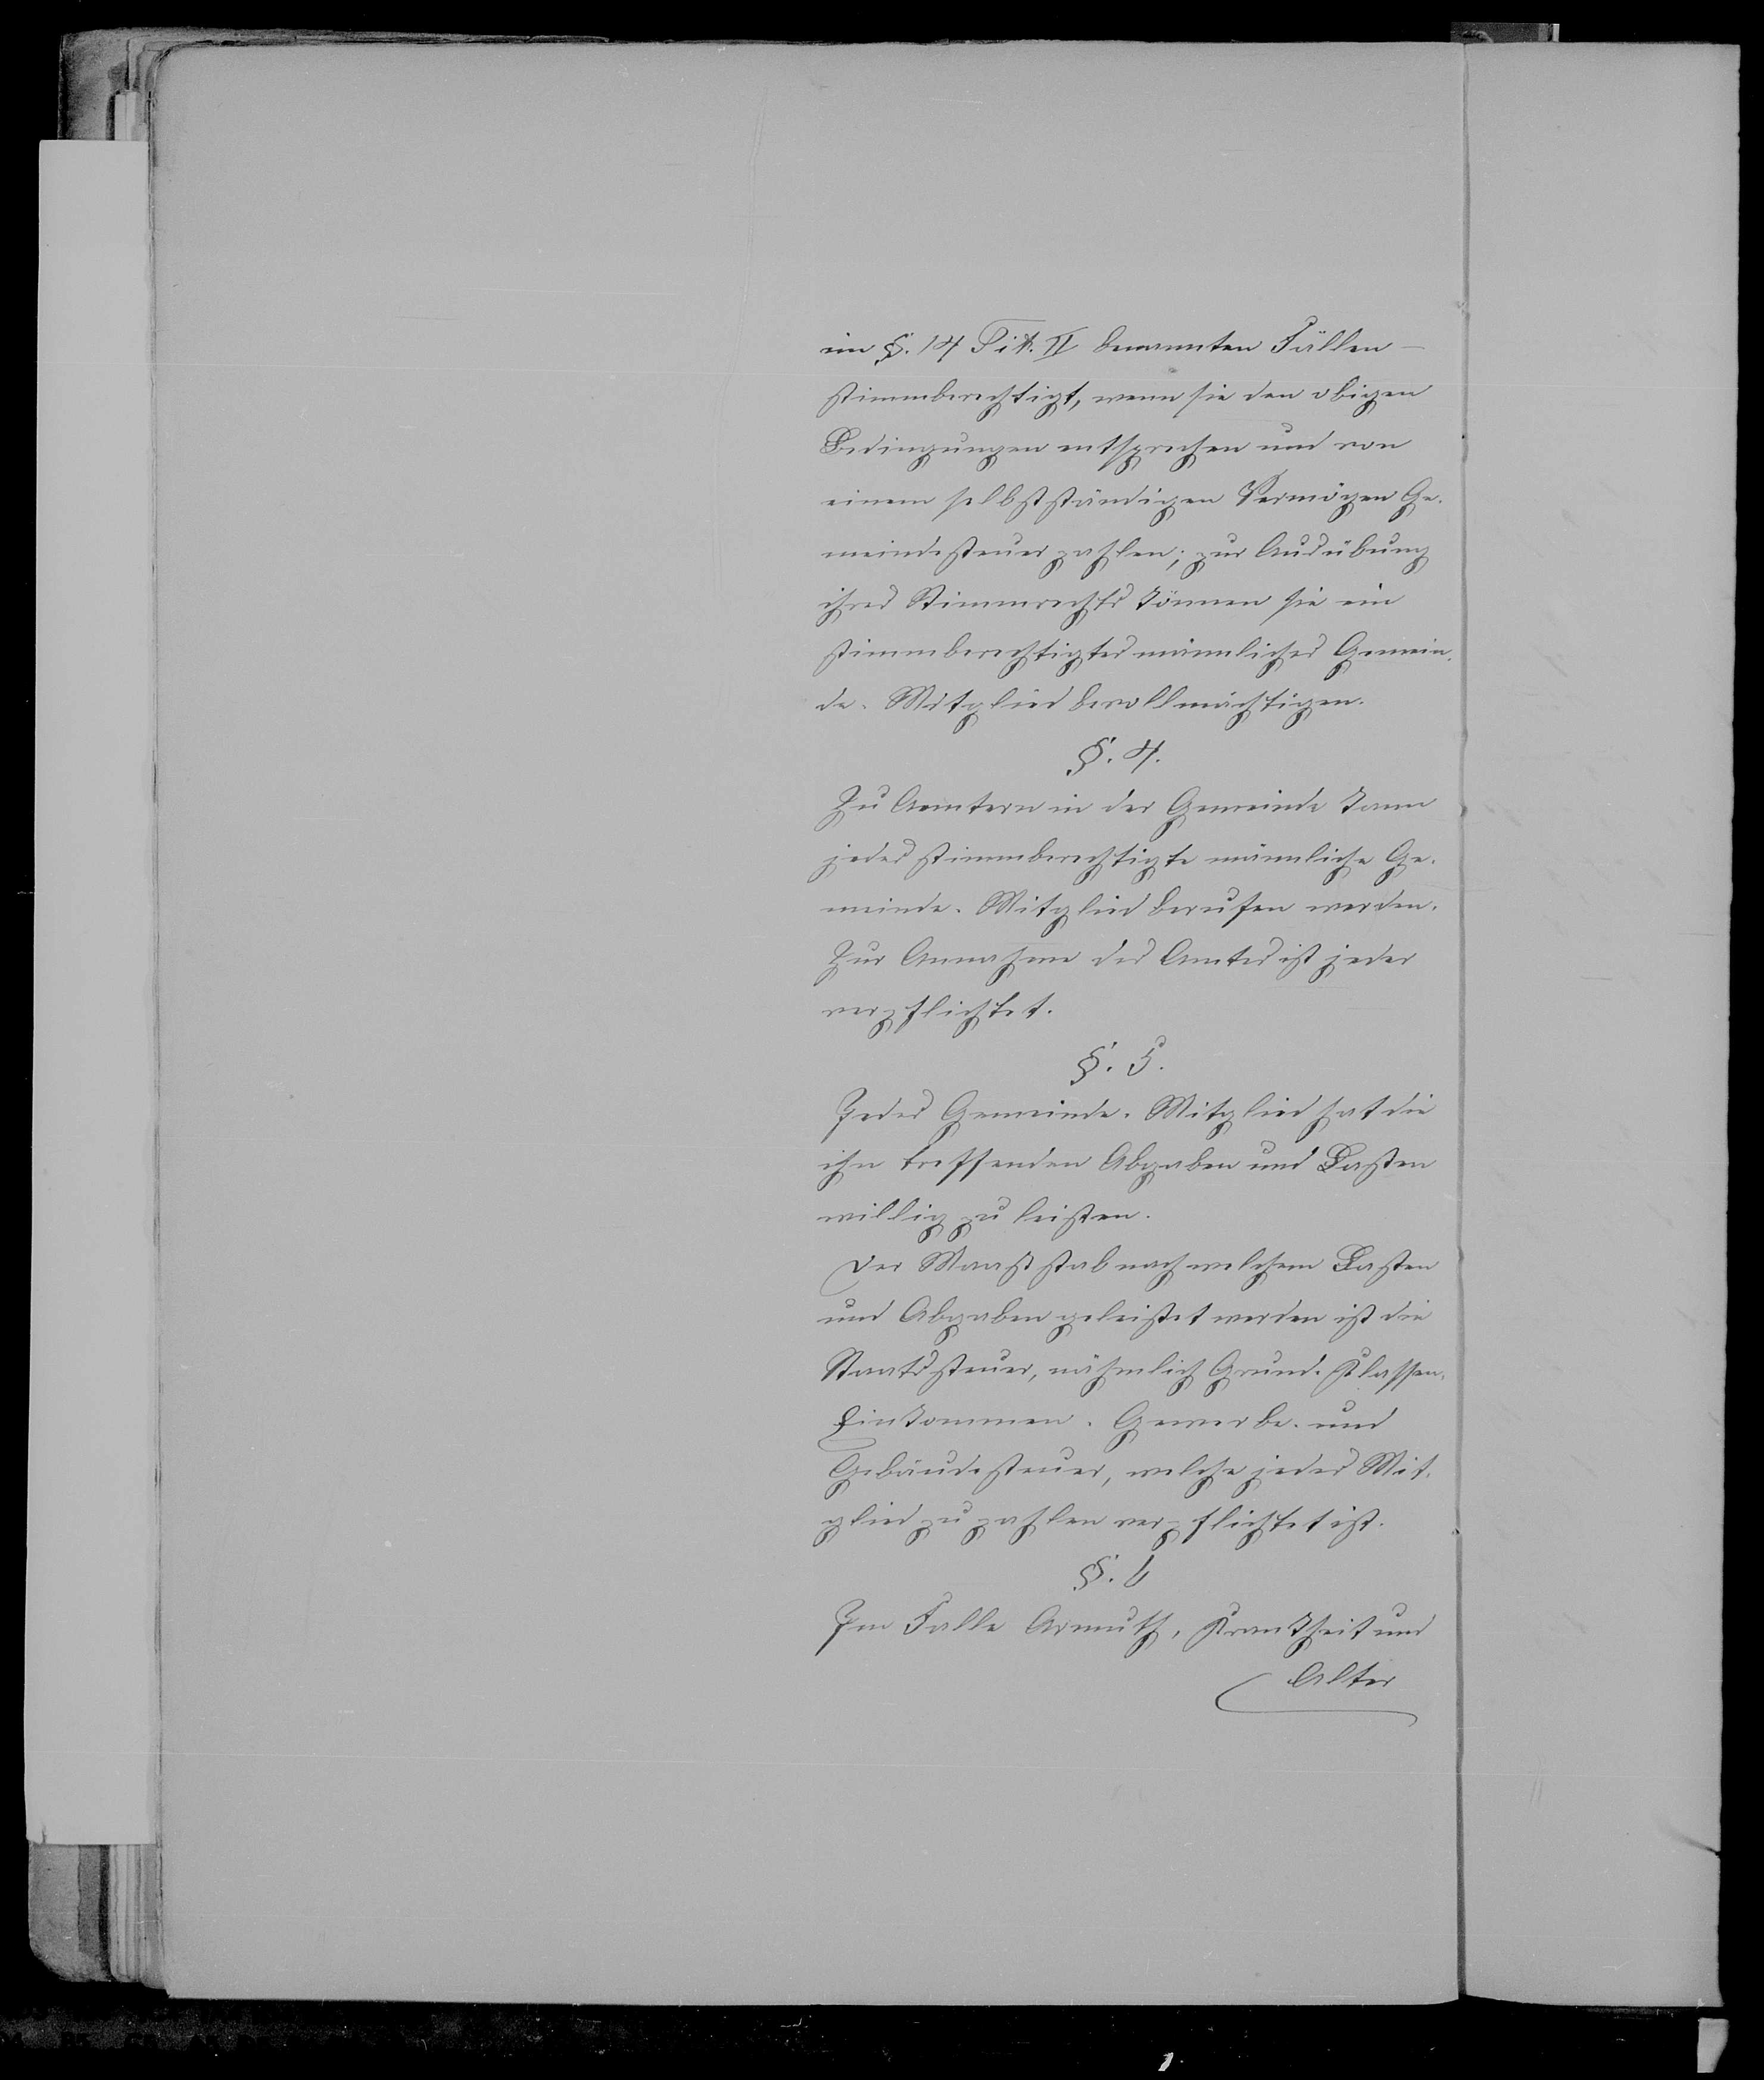 im §. 14 Tit. II benannten Fällen —
stimmberechtigt, wenn sie den obigen
Bedingungen entsprechen und von
einem selbstständigen Vermögen Ge-
meindesteuer zahlen; zur Ausübung
ihres Stimmrechts können sie ein
stimmberechtigtes männliches Gemein-
de-Mitglied bevollmächtigen.
§. 4.
Zu Aemtern in der Gemeinde kann
jedes stimmberechtigte männliche Ge-
meinde-Mitglied berufen werden.
Zur Annahme des Amtes ist jeder
verpflichtet.
§. 5.
Jedes Gemeinde-Mitglied hat die
ihn treffenden Abgaben und Lasten
willig zu leisten.
Der Maaßstab nach welchem Lasten
und Abgaben geleistet werden ist die
Staatssteuer, nähmlich Grund-Klassen-
Einkommen-Gewerbe- und
Gebäudesteuer, welche jedes Mit-
glied zu zahlen verpflichtet ist.
§. 6
Im Falle Armuth, Krankheit und
Alter